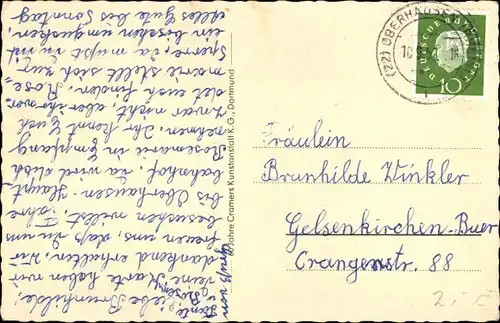 Liebe Brunhilde,
deine Karte haben wir
dankend erhalten, wir
freuen uns, daß du uns
besuchen willst. Fahre
bis Oberhausen-Haupt-
bahnhof, da wird dich
Rosemarie in Empfang
nehmen. Ihr kennt Euch
zwar nicht, aber ihr
det euch finden. Rose
marie stellt sich zur
Sperre, da mußt du mit
ein bischen umgucken,
alles Gute bis Sonntag
Gruß von
Tante
Rosem.
Jahre Cramers Kunstanstalt K.G., Dortmund
(22) OBERHAUSEN
DEUTSCHE BUNDESPOST
10
Fräulein
Brunhilde Winkler
Gelsenkirchen-Buer
Crangerstr. 88